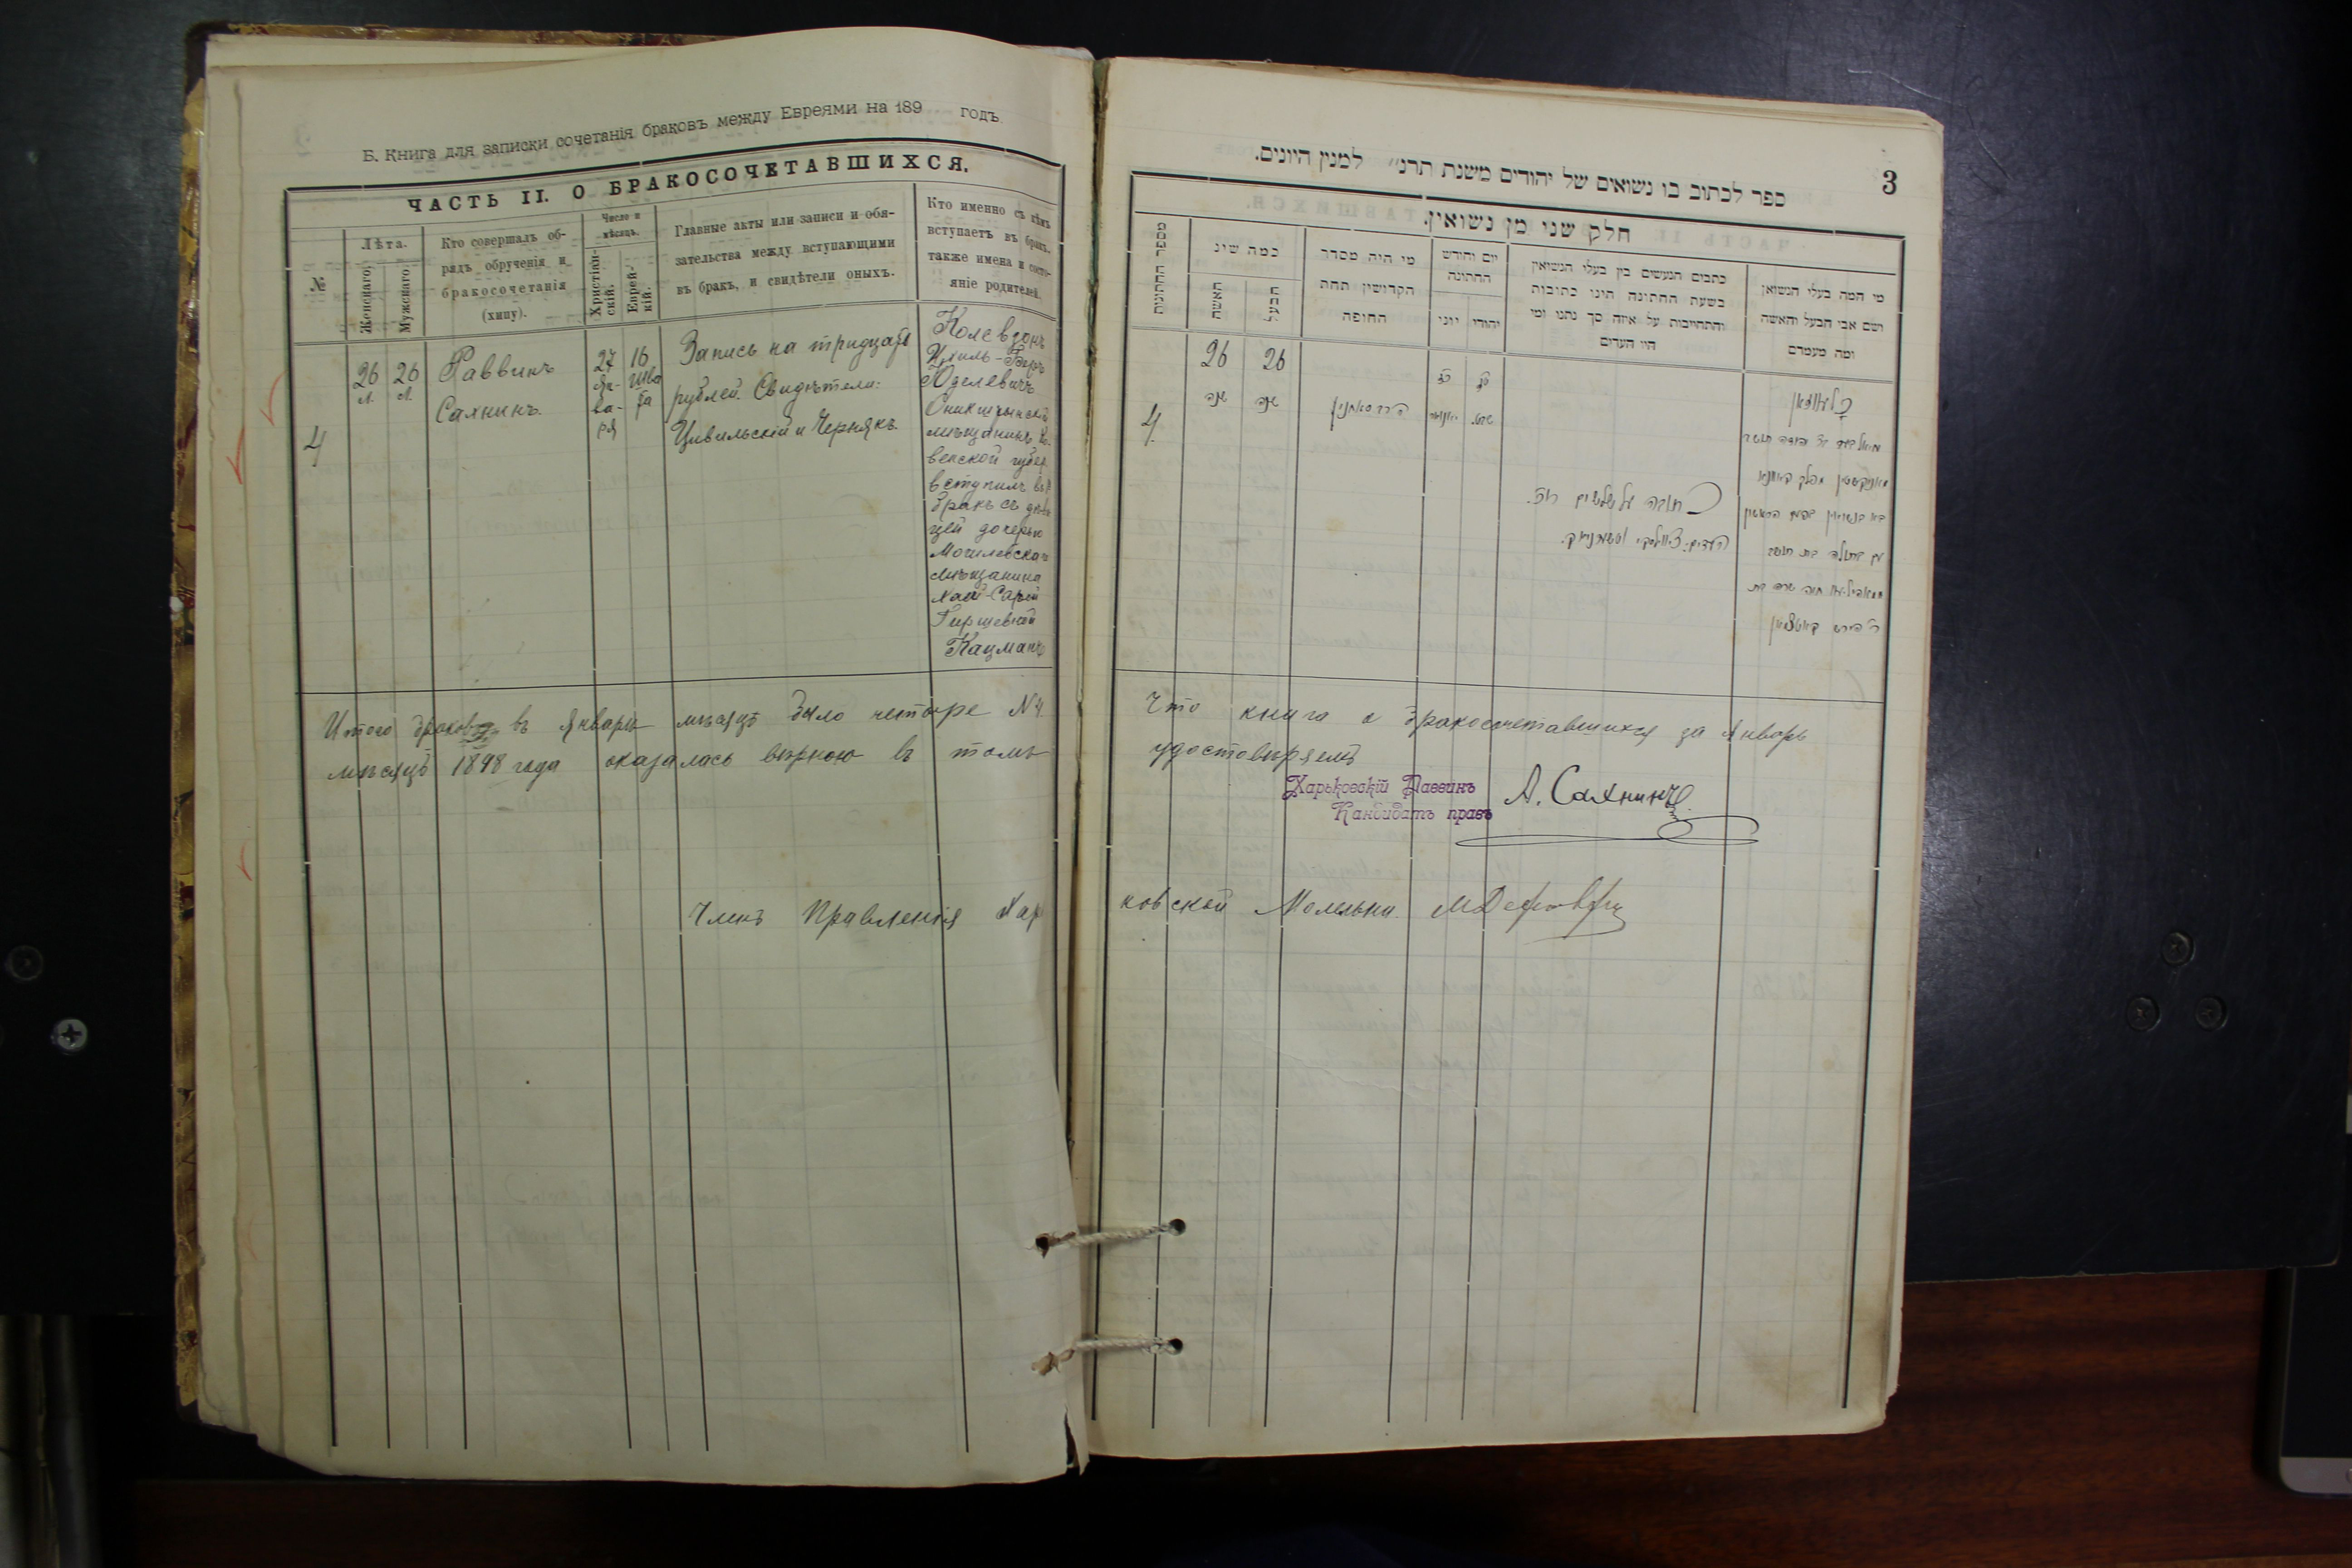 Б. Книга для записки сочетанія браковъ между Евреями на 189 годъ
ЧАСТЬ II. О БРАКОСОЧЕТАВШИХСЯ.
№
Лѣта.
Женскаго.
Мужскаго.
Кто совершалъ об-
рядъ обрученія и
бракосочетанія
(хипу).
Число и
мѣсяцъ.
Христіан-
скій.
Еврей-
скій.
Главные акты или записи и обя-
зательства между вступающими
въ бракъ, и свидѣтели оныхъ.
Кто именно съ кѣмъ
вступаетъ въ бракъ,
также имена и состо-
яніе родителей.
4
26
л.
26
л.
Раввинъ
Сахнинъ.
27
Ян-
ва-
ря
16
Шва
та
Запись на тридцать
рублей. Свидѣтели:
Цивильскій и Чернякъ.
Колевзонъ
Юделевичъ
мѣщанинъ Ко-
венской губер.
вступилъ въ
бракъ съ дѣви-
цей дочерью
Могилевскаго
мѣщанина
Хаей-Сарой
Гиршевной
Кацманъ
Итого браковъ въ Январѣ мѣсяцѣ было четыре №4.
мѣсяцъ 1898 года оказалась вѣрною въ томъ
Членъ Правленія Харь
3
ספר לכתוב בו נשואים של יהודים משנת תרנ״ למנין היונים.
חלק שני מן נשואין.
מספר החתונות
כמה שינ
האשה
הבעל
מי היה מסדר
הקדושין תחת
החופה
יום וחודש
החתונה
יוני
יהודי
כתבים הנעשים בין בעלי הנשואין
בשעת החתונה היגו כתובות
והתחייבות על איזה סך נתנו ומי
היו העדים
מי המה בעלי הנשואן
ושם אבי הבעל והאשה
ומה מעמדם
4.
26
שנה
26
שנה
הרב סאחנין
כז
יאנואר
שבט
כתובה על שלשים רוכ.
העדים: ציווילסקי וטשערניאק.
Что книга о бракосочетавшихся за Январь
удостовѣряемъ
Харьковскій Раввинъ
Кандидатъ правъ
А. Сахнинъ.
ковской Молельни